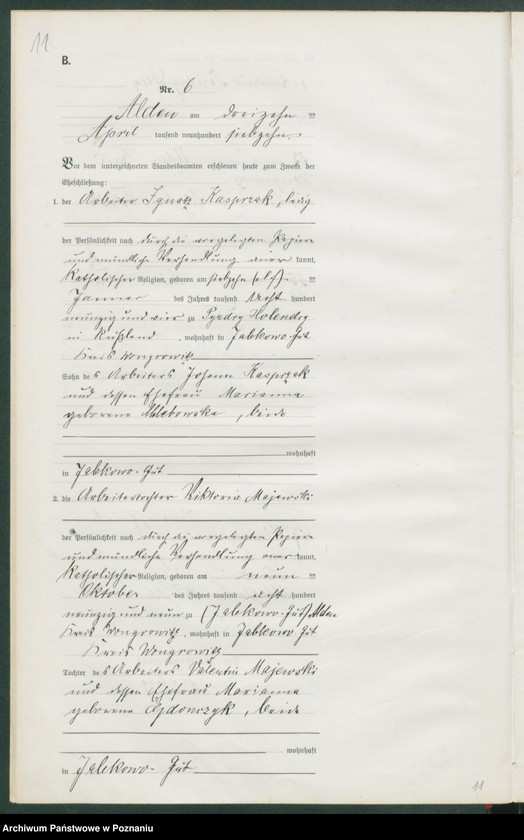 11
B.
Nr. 6
Alden am dreizehn ten
April tausend neunhundert siebzehn.
Vor dem unterzeichneten Standesbeamten erschienen heute zum Zwecke der
Eheschließung:
1. der Arbeiter Ignatz Kasprzak, ledig
der Persönlichkeit nach durch die vorgelegten Papiere
und mündliche Verhandlung kannt,
Katholischer Religion, geboren am siebzehn (elf) ten
Januar des Jahres tausend acht hundert
neunzig und vier zu Pyzdry Holendry
in Rußland, wohnhaft in Jabkowo-Gut
Kreis Wongrowitz
Sohn des Arbeiters Johann Kasprzak
und dessen Ehefrau Marianna
geborene, beide
wohnhaft
in Jabkowo-Gut
2. die Arbeitertochter Viktoria Majewski
der Persönlichkeit nach durch die vorgelegten Papiere
und mündliche Verhandlung kannt,
Katholischer Religion, geboren am neun ten
Oktober des Jahres tausend acht hundert
neunzig und neun zu (Jabkowo-Gut) Alden
Kreis Wongrowitz, wohnhaft in Jabkowo-Gut
Kreis Wongrowitz
Tochter des Arbeiters Valentin Majewski
und dessen Ehefrau Marianna
geborene, beide
wohnhaft
in Jabkowo-Gut
11
Archiwum Państwowe w Poznaniu